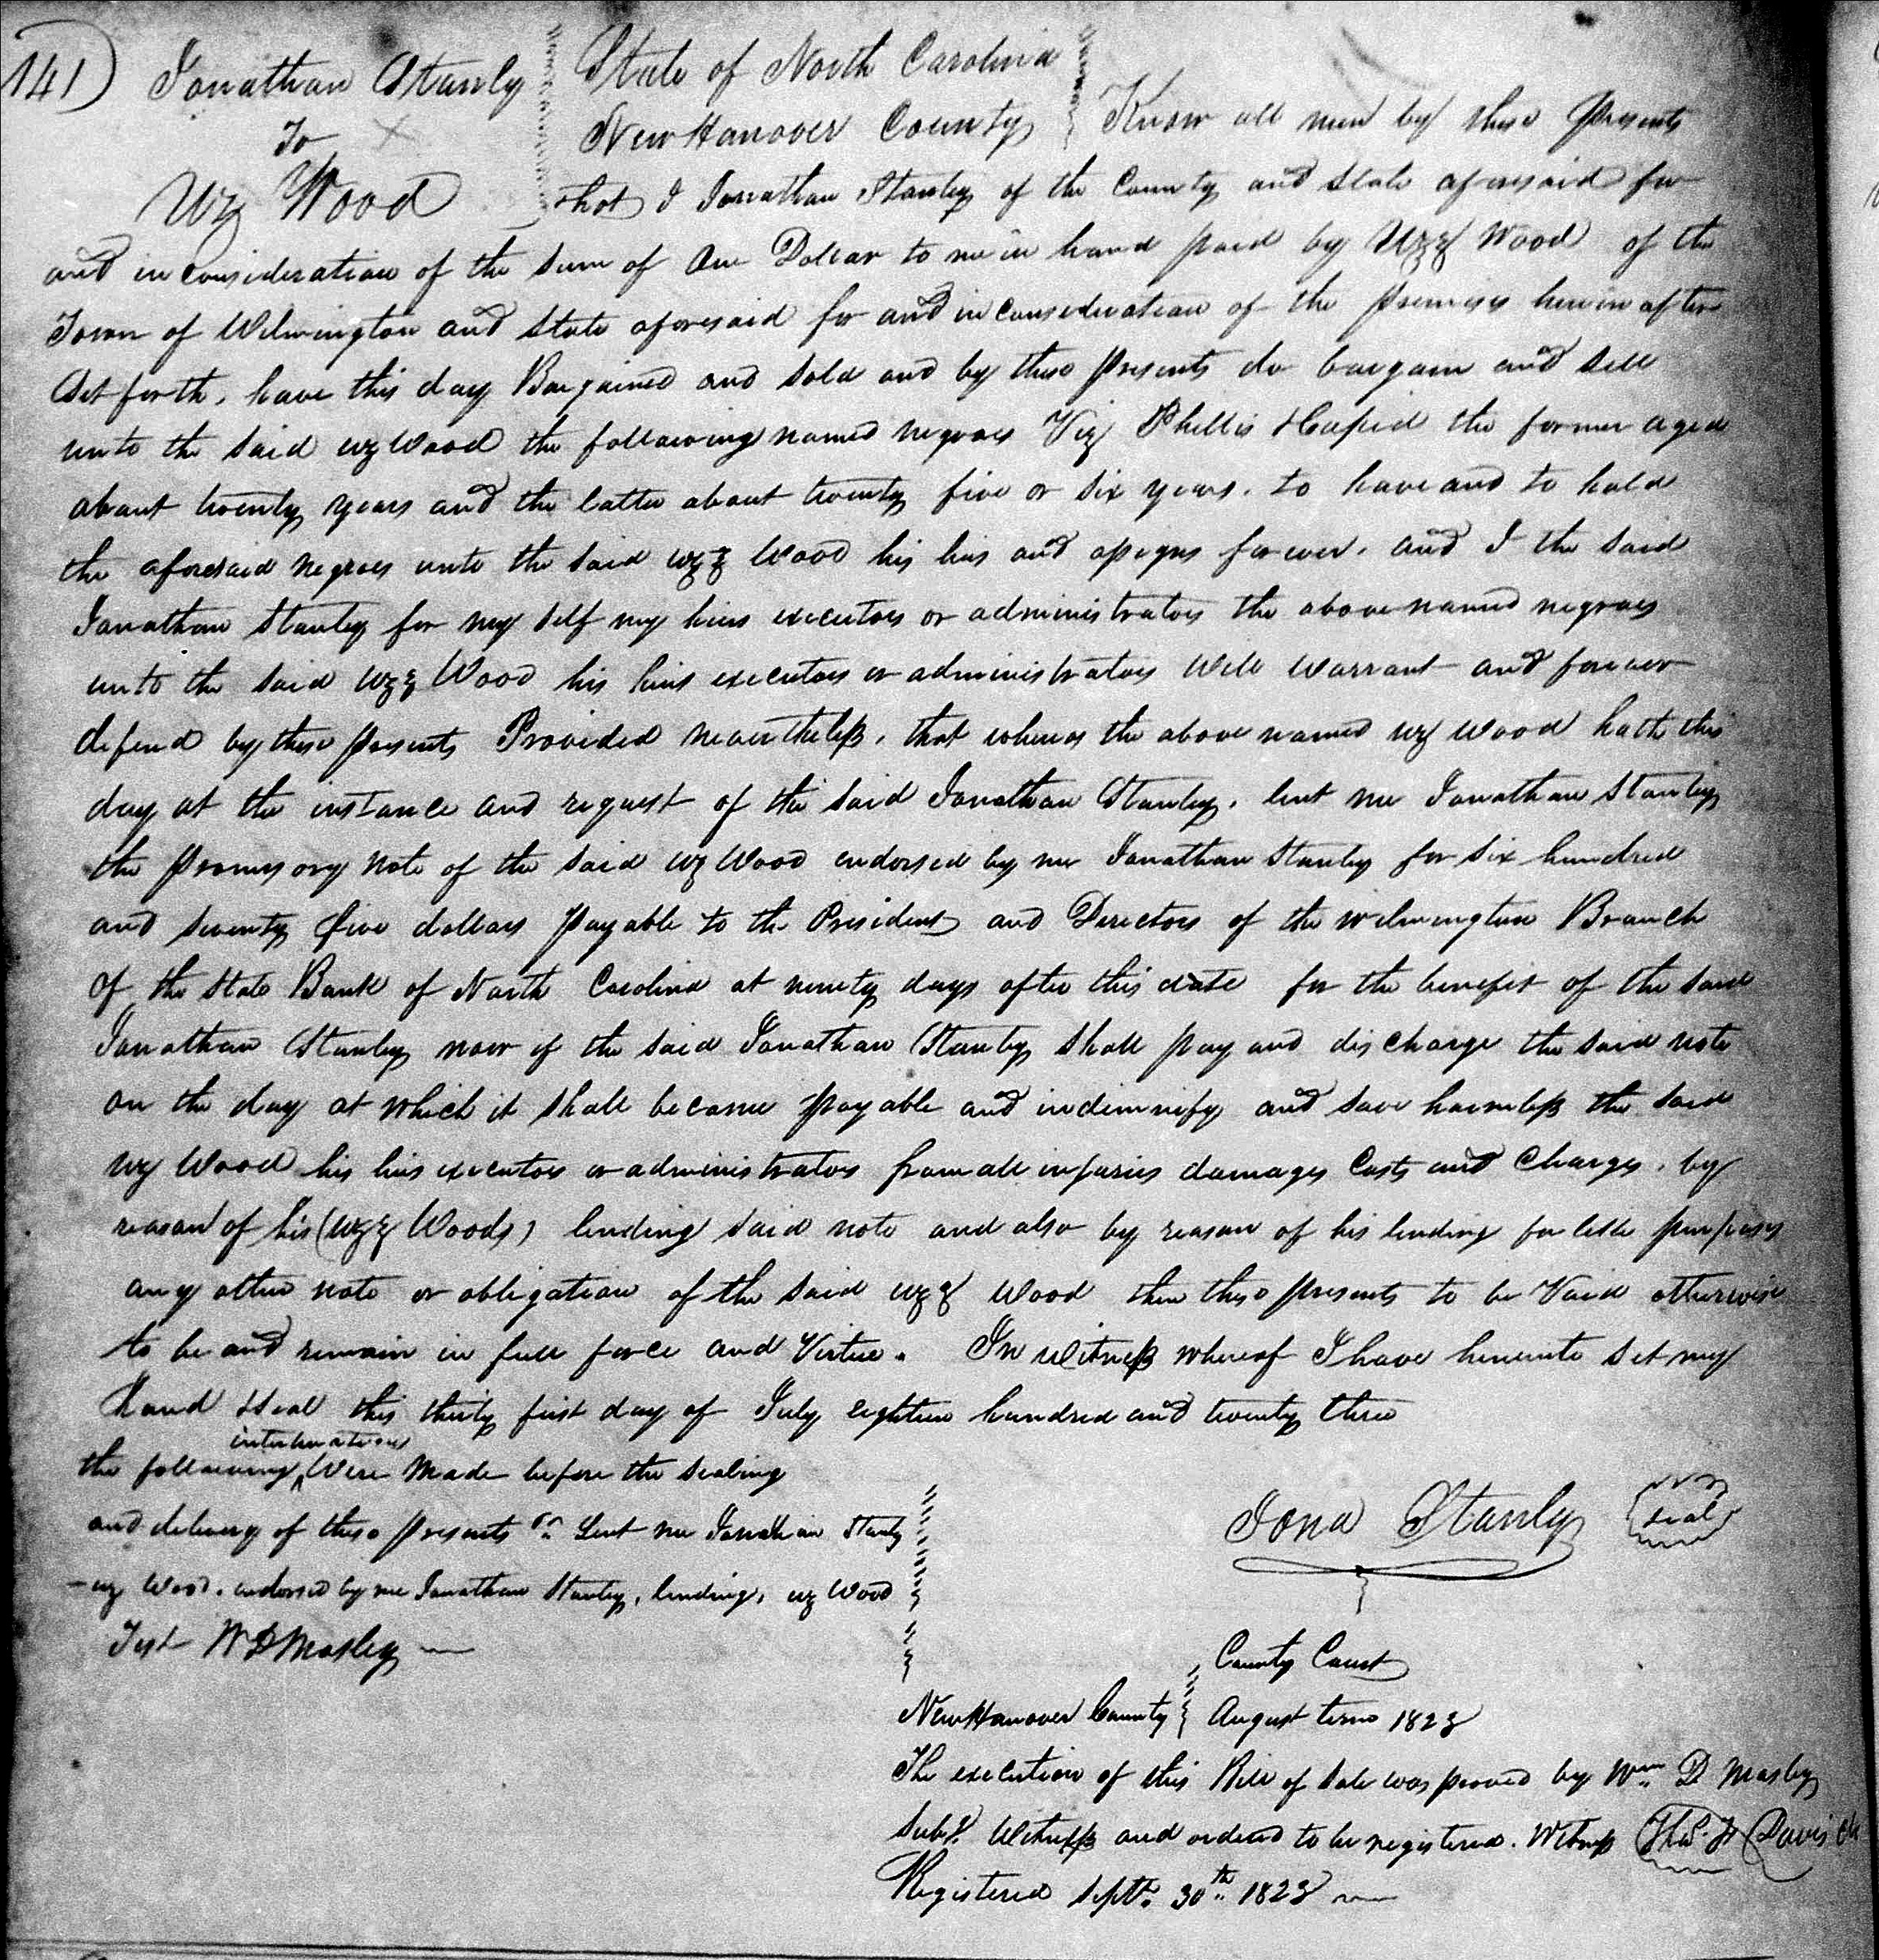 141) Jonathan Stanly State of North Carolina
To New Hanover County Know all men by these presents
Uz Wood that I Jonathan Stanley of the County and State aforesaid for
and in consideration of the sum of One Dollar to me in hand paid by Uzz Wood of the
Town of Wilmington and State aforesaid for and in consideration of the premises herein after
Set forth, have this day Bargained and sold and by these presents do bargain and sell
unto the said Uz Wood the following named negroes Viz Phillis & Cupid the former aged
about twenty years and the latter about twenty five or six years. to have and to hold
the aforesaid negroes unto the said Uzz Wood his heirs and assigns forever. and I the said
Jonathan Stanley for my self my heirs executors or administrators the above named negroes
unto the said Uzz Wood his heirs executors or administrators will warrant and forever
defend by these presents Provided nevertheless, that whereas the above named Uz Wood hath this
day at the instance and request of the said Jonathan Stanley, lent me Jonathan Stanley
the promisory note of the said Uz Wood endorsed by me Jonathan Stanley for six hundred
and seventy five dollars payable to the President and Directors of the Wilmington Branch
of the State Bank of North Carolina at ninety days after this date for the benefit of the said
Jonathan Stanley now if the said Jonathan Stanley shall pay and discharge the said note
on the day at which it shall become payable and indemnify and save harmless the said
Uz Wood his heirs executors or administrators from all injuries damages Costs and Charges, by
reason of his (Uzz Woods) lending said note and also by reason of his lending for like purposes
any other note or obligation of the said Uzz Wood then these presents to be Void otherwise
to be and remain in full force and Virtue. In witness whereof I have hereunto set my
hand & seal this thirty first day of July eighteen hundred and twenty three
interlineations
the following were made before the sealing
and delivery of these presents Lent me Jonathan Stanly
Jona Stanly seal
- Uz Wood. endorsed by me Jonathan Stanley, lending, Uz Wood
Test W D Mosley
County Court
New Hanover County August term 1823
The execution of this Bill of Sale was proved by Wm D Mosley
Subs. Witness and ordered to be registered. Witness Thos. F Davis Clk
Registered Septr. 30th 1823